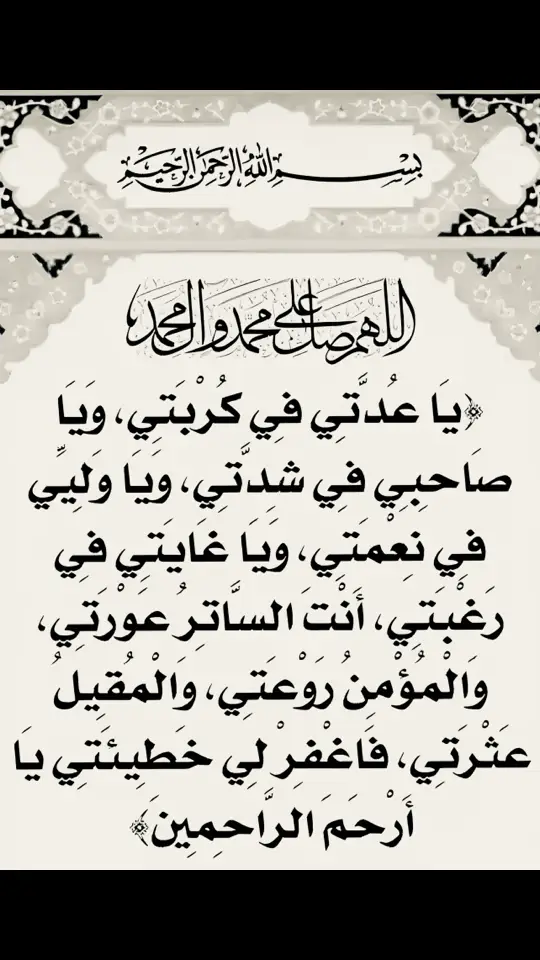 بِسْمِ اللهِ الرَّحْمٰنِ الرَّحِيْمِ
اللهم صل على محمد وال محمد
﴿يَا عُدَّتِي فِي كُرْبَتِي، وَيَا
صَاحِبِي فِي شِدَّتِي، وَيَا وَلِيِّي
فِي نِعْمَتِي، وَيَا غَايَتِي فِي
رَغْبَتِي، أَنْتَ السَّاتِرُ عَوْرَتِي،
وَالْمُؤْمِنُ رَوْعَتِي، وَالْمُقِيلُ
عَثْرَتِي، فَاغْفِرْ لِي خَطِيئَتِي يَا
أَرْحَمَ الرَّاحِمِينَ﴾